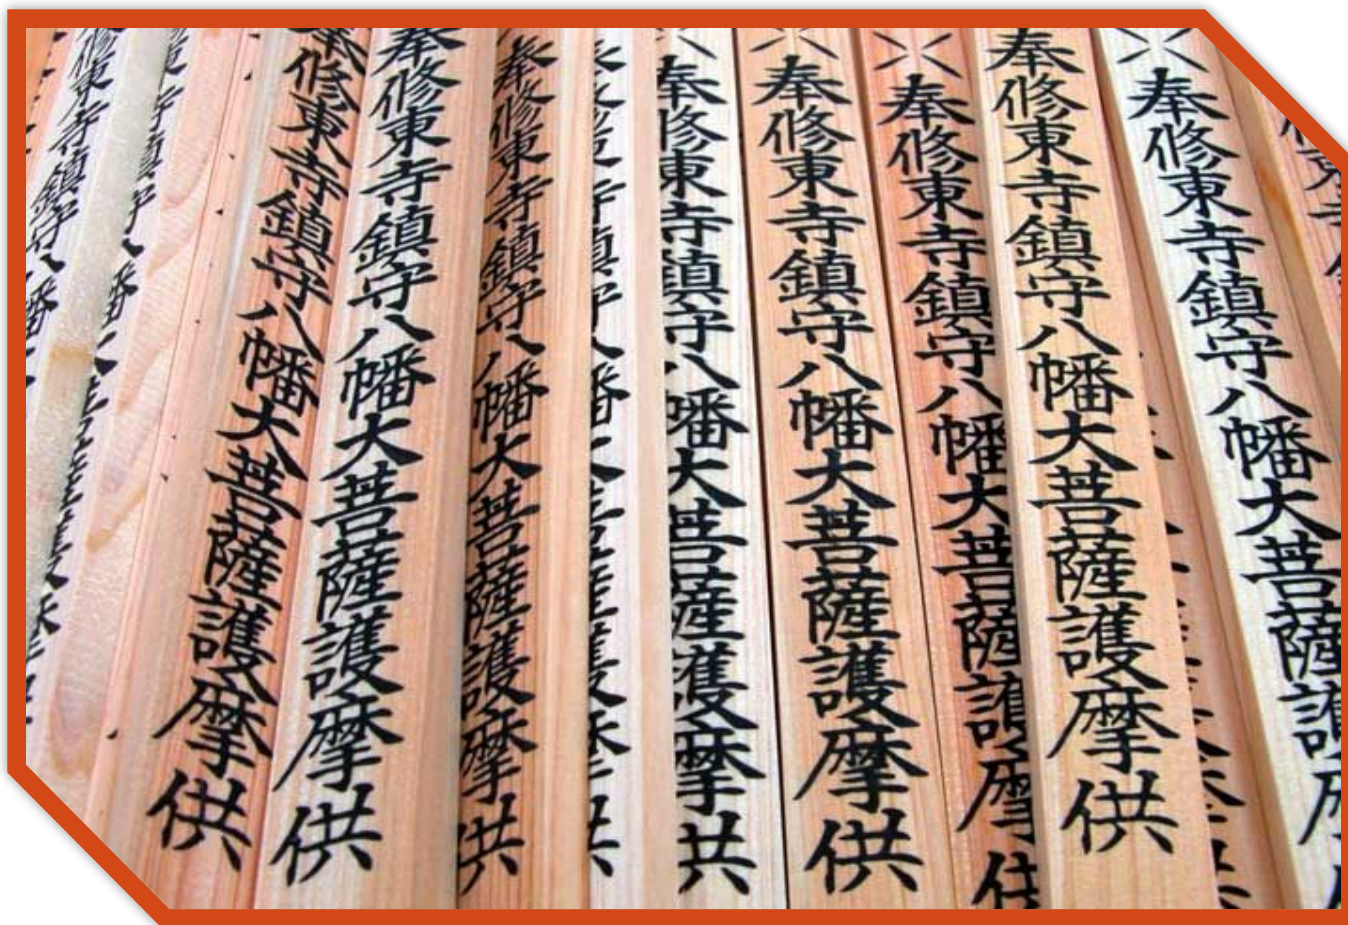 奉修東寺鎮守八幡大菩薩護摩
奉修東寺鎮守八幡大菩薩護摩供
奉修東寺鎮守八幡大菩薩護摩供
奉修東寺鎮守八幡大菩薩護摩供
奉修東寺鎮守八幡大菩薩護摩供
奉修東寺鎮守八幡大菩薩護摩供
奉修東寺鎮守八幡大菩薩護摩供
奉修東寺鎮守八幡大菩薩護摩供
修東寺鎮守八幡